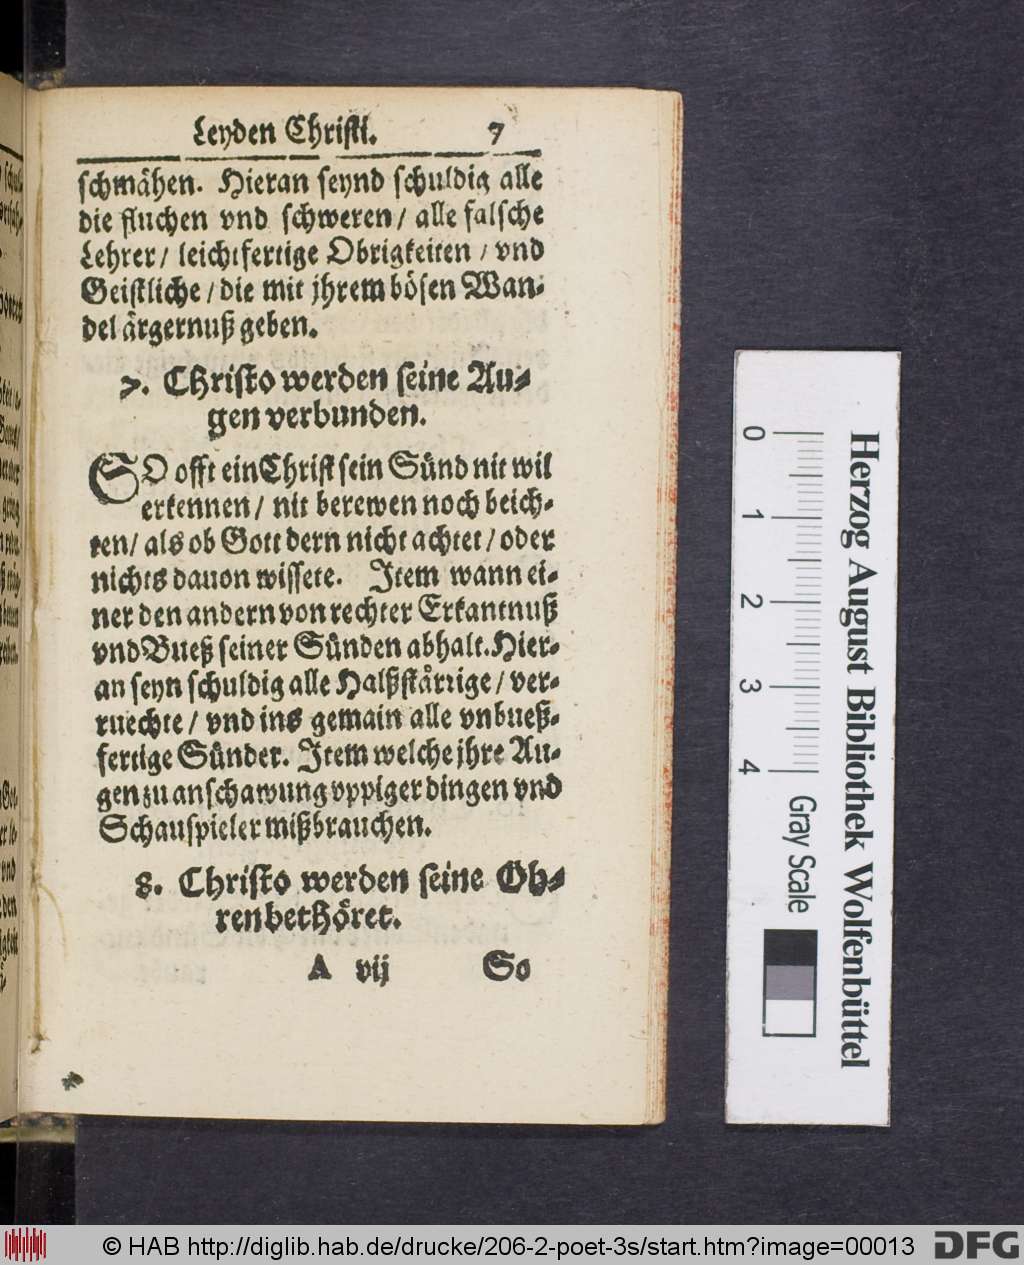 Leyden Christi. 7
schmähen. Hieran seynd schuldig alle
die fluchen vnd schweren / alle falsche
Lehrer / leichtfertige Obrigkeiten / vnd
Geistliche / die mit jhrem bösen Wan-
del ärgernuß geben.
7. Christo werden seine Au-
gen verbunden.
SO offt ein Christ sein Sünd nit wil
erkennen / nit berewen noch beich-
ten / als ob Gott dern nicht achtet / oder
nichts dauon wissete. Item wann ei-
ner den andern von rechter Erkantnuß
vnd Bueß seiner Sünden abhalt. Hier-
an seyn schuldig alle Halßstärrige / ver-
ruechte / vnd ins gemain alle vnbueß-
fertige Sünder. Item welche jhre Au-
gen zu anschawung vppiger dingen vnd
Schauspieler mißbrauchen.
8. Christo werden seine Oh-
ren bethöret.
A vij So
0 1 2 3 4 Gray Scale
Herzog August Bibliothek Wolfenbüttel
© HAB http://diglib.hab.de/drucke/206-2-poet-3s/start.htm?image=00013 DFG